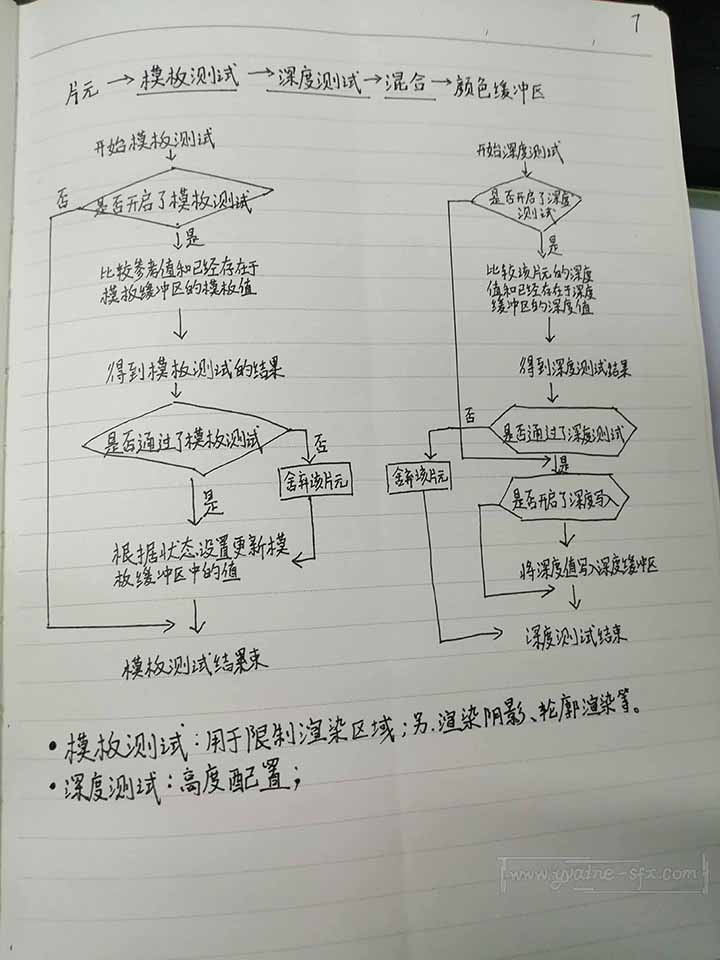 7
片元→模板测试→深度测试→混合→颜色缓冲区
开始模板测试
否
是否开启了模板测试
是
比较参考值和已经存在于
模板缓冲区的模板值
得到模板测试的结果
是否通过了模板测试
否
舍弃该片元
是
根据状态设置更新模
板缓冲区中的值
模板测试结束
开始深度测试
是否开启了深度
测试
是
比较该片元的深度
值和已经存在于深度
缓冲区的深度值
得到深度测试结果
否
是否通过了深度测试
舍弃该片元
是
是否开启了深度写入
将深度值写入深度缓冲区
深度测试结束
•模板测试：用于限制渲染区域；另.渲染阴影、轮廓渲染等。
•深度测试：高度配置；
www.yvaine-sfx.com